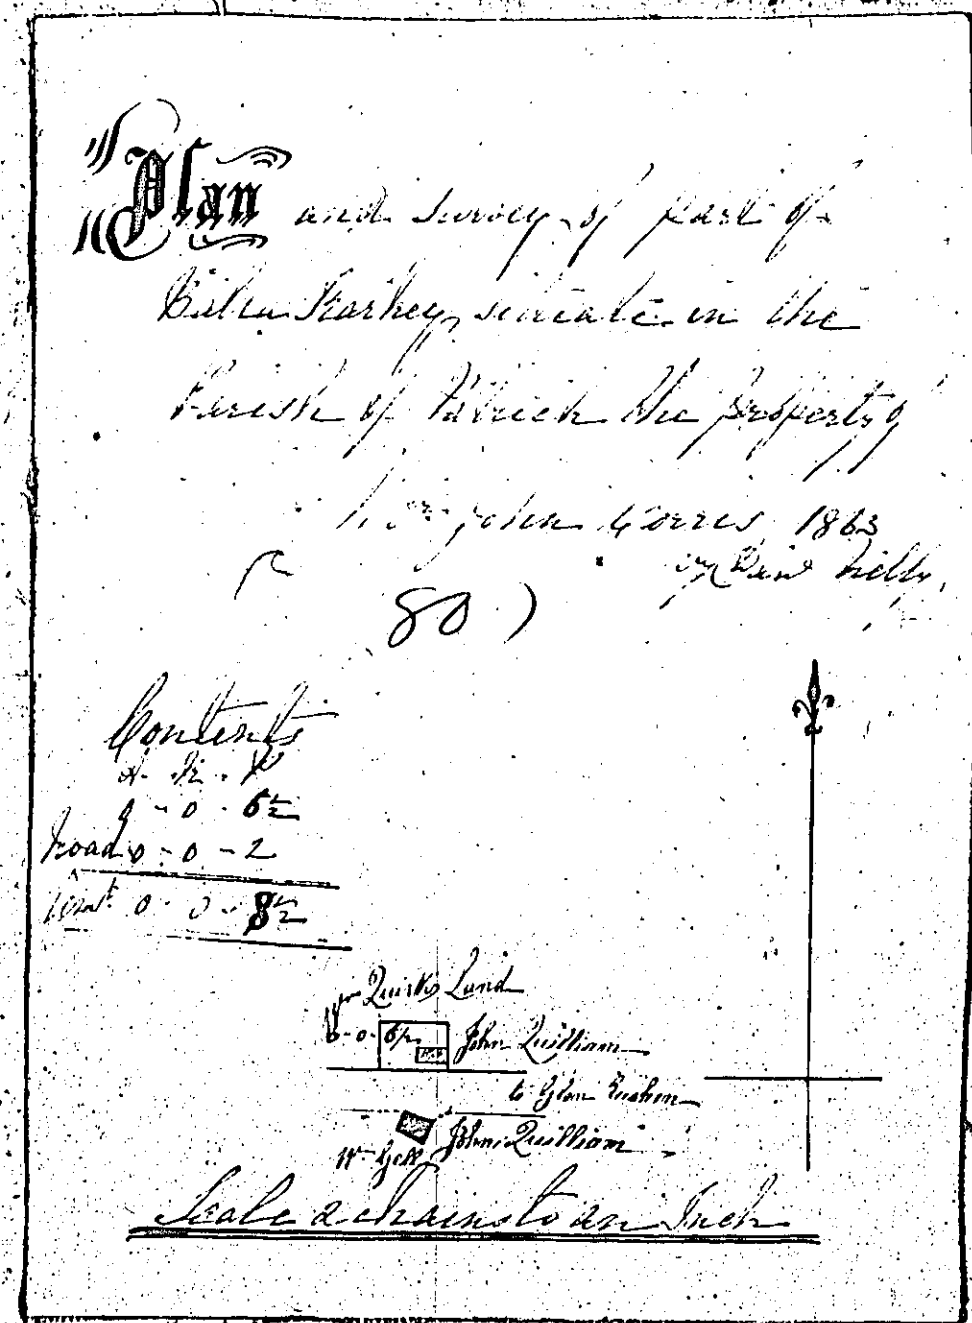 Plan and survey of part of
situate in the
Parish of Patrick the property of
John 1863
80)
Contents
A. R. P
0 - 0 - 6½
Road 0 - 0 - 2
0 - 0 - 8½
Quirk's Land
0 - 0 - 6½ John Quilliam
to Glen Rushen
Wm Gell John Quilliam
Scale 2 chains to an Inch